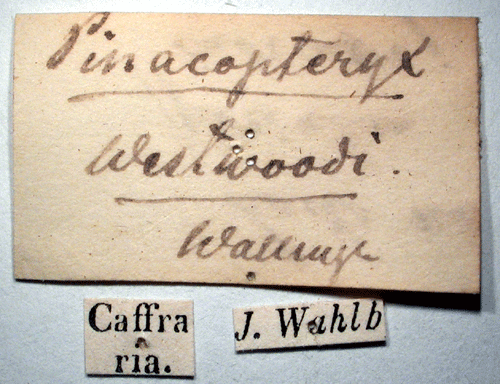 Pinacopteryx
Westwoodi.
Wallengr
Caffra
ria.
J. Wahlb